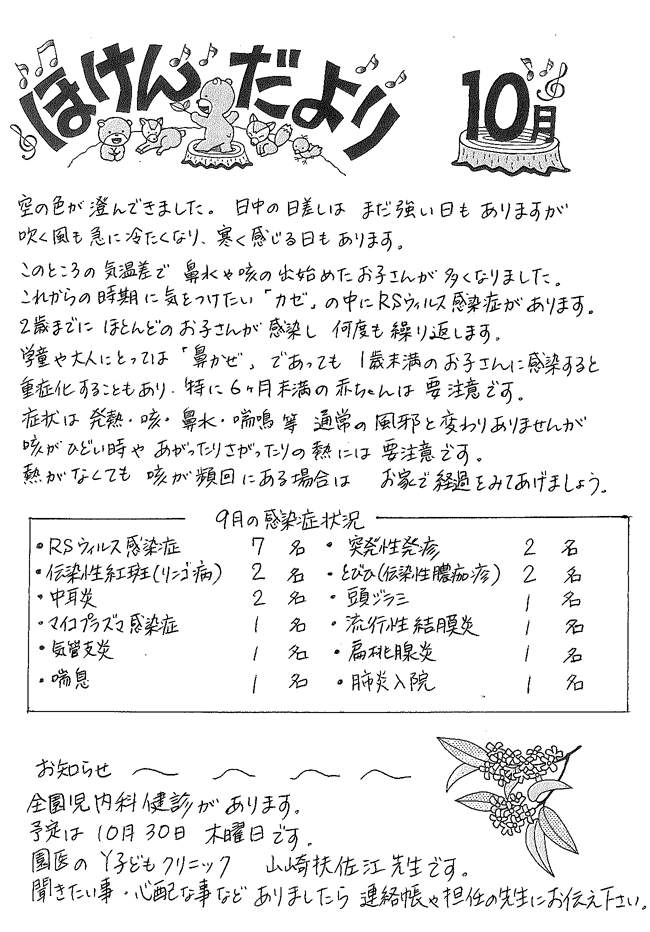 ほけんだより 10月
空の色が澄んできました。 日中の日差しは まだ強い日も ありますが
吹く風も急に冷たくなり、寒く感じる日もあります。
このところの気温差で 鼻水や咳の出始めたお子さんが 多くなりました。
これからの時期に気をつけたい「カゼ」の中にRSウィルス感染症があります。
2歳までに ほとんどのお子さんが 感染し 何度も繰り返します。
学童や大人にとっては「鼻かぜ」であっても 1歳未満のお子さんに感染すると
重症化することもあり、特に6ヶ月未満の赤ちゃんは 要注意です。
症状は 発熱・咳・鼻水・喘鳴 等 通常の 風邪と変わりありませんが
咳がひどい時や あがったりさがったりの熱には 要注意です。
熱がなくても 咳が頻回にある場合は お家で経過をみてあげましょう。
9月の感染症状況
・RSウィルス感染症 7 名 ・突発性発疹 2 名
・伝染性紅斑(リンゴ病) 2 名 ・とびひ(伝染性膿痂疹) 2 名
・中耳炎 2 名 ・頭ジラミ 1 名
・マイコプラズマ感染症 1 名 ・流行性結膜炎 1 名
・気管支炎 1 名 ・扁桃腺炎 1 名
・喘息 1 名 ・肺炎入院 1 名
お知らせ
全園児内科健診があります。
予定は 10月30日 木曜日です。
園医の Y子どもクリニック 山崎扶佐江先生です。
聞きたい事・心配な事など ありましたら 連絡帳や担任の先生にお伝え下さい。